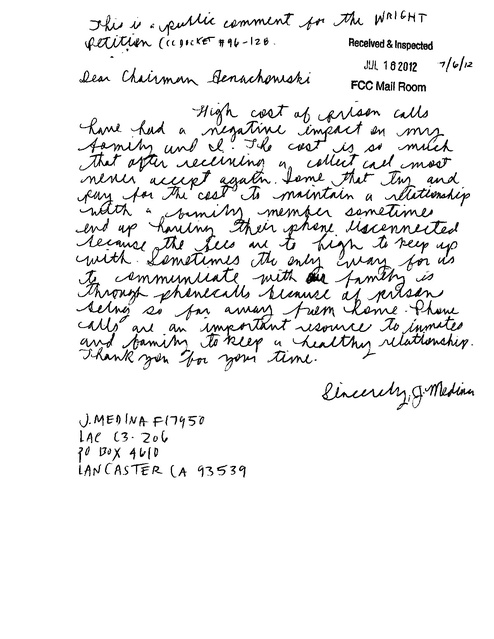 This is a public comment for the WRIGHT
Petition (CC DOCKET #96-128.
Received & Inspected
JUL 16 2012
7/6/12
FCC Mail Room
Dear Chairman Genachowski
High cost of prison calls
have had a negative impact on my
family and I. The cost is so much
that after receiving a collect call most
never accept again. Some that try and
pay for the cost to maintain a relationship
with a family member sometimes
end up having their phone disconnected
because the fees are to high to keep up
with. Sometimes the only way for us
to communicate with family is
through phonecalls because of prison
being so far away from home. Phone
calls are an important resource to inmates
and family to keep a healthy relationship.
Thank you for your time.
Sincerely, J. Medina
J. MEDINA F17950
LAC C3-206
PO BOX 4610
LANCASTER CA 93539